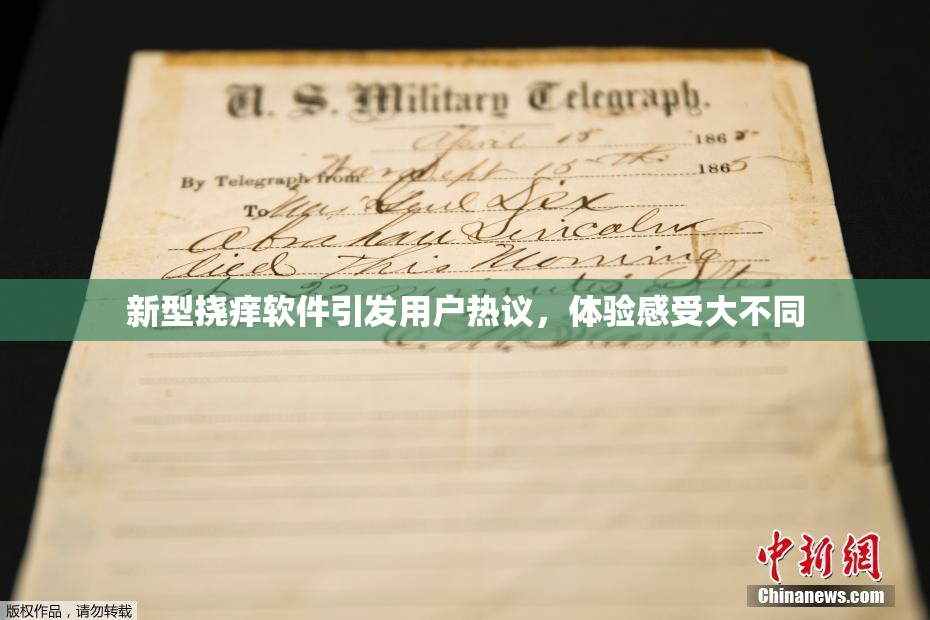 U. S. Military Telegraph.
April 15 1865
By Telegraph from War Dept 15th 1865
To Maj Genl Dix
Abraham Lincoln
died This Morning
at 22 minutes after
新型挠痒软件引发用户热议，体验感受大不同
E. M. Stanton
中新网
Chinanews.com
版权作品，请勿转载